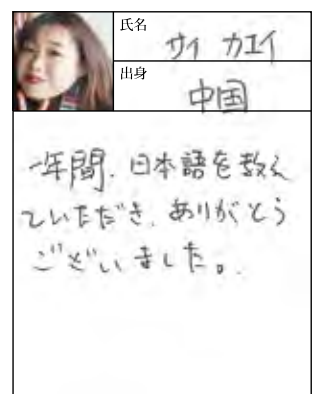 氏名
サイ カエイ
出身
中国
一年間、日本語を教え
ていただき、ありがとう
ございました。